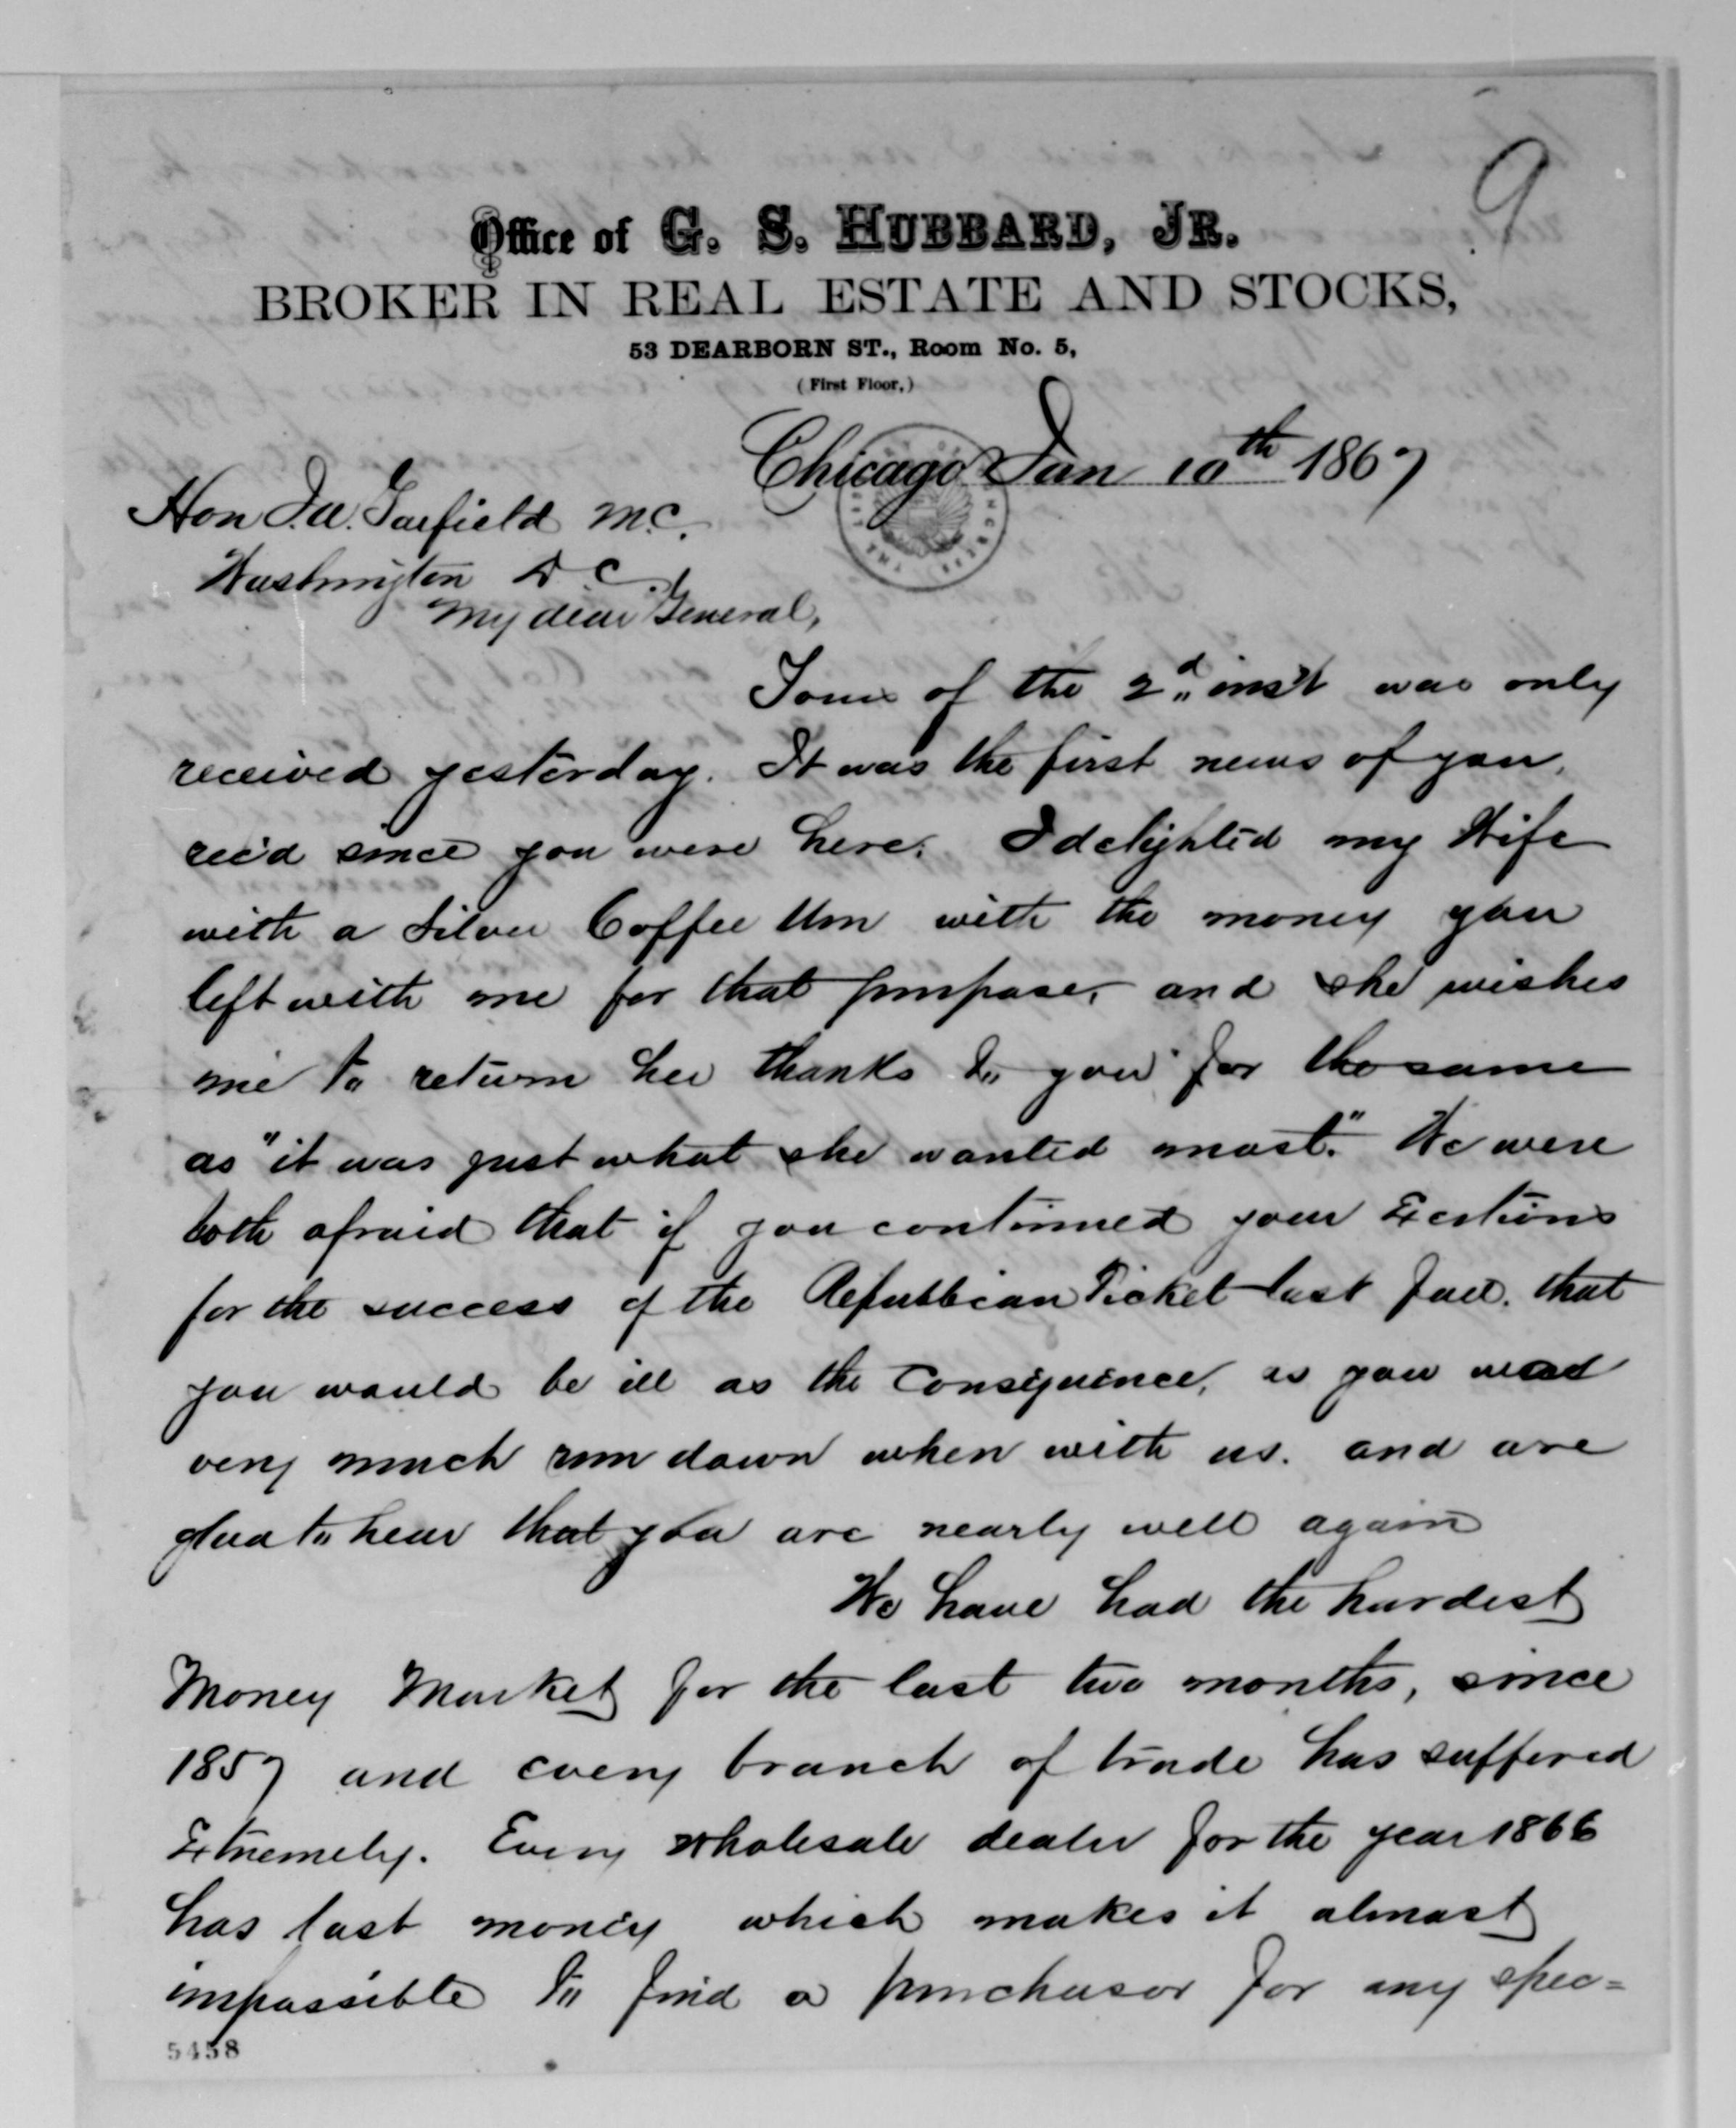 9
Office of G. S. HUBBARD, JR.
BROKER IN REAL ESTATE AND STOCKS,
53 DEARBORN ST., Room No. 5,
(First Floor,)
Chicago Jan 10th 1867
Hon J. A. Garfield M.C.
Washington D.C.
My dear General,
Yours of the 2d inst was only
received yesterday. It was the first news of you,
rec'd since you were here. I delighted my Wife
with a Silver Coffee Urn with the money you
left with me for that purpose, and she wishes
me to return her thanks to you for the same
as "it was just what she wanted most." We were
both afraid that if you continued your Exertions
for the success of the Republican Ticket last fall, that
you would be ill as the Consequence, as you were
very much run down when with us. and are
glad to hear that you are nearly well again
We have had the hardest
Money Market for the last two months, since
1857 and every branch of trade has suffered
Extremely. Every wholesale dealer for the year 1866
has lost money which makes it almost
impossible to find a purchaser for any spec=
5458